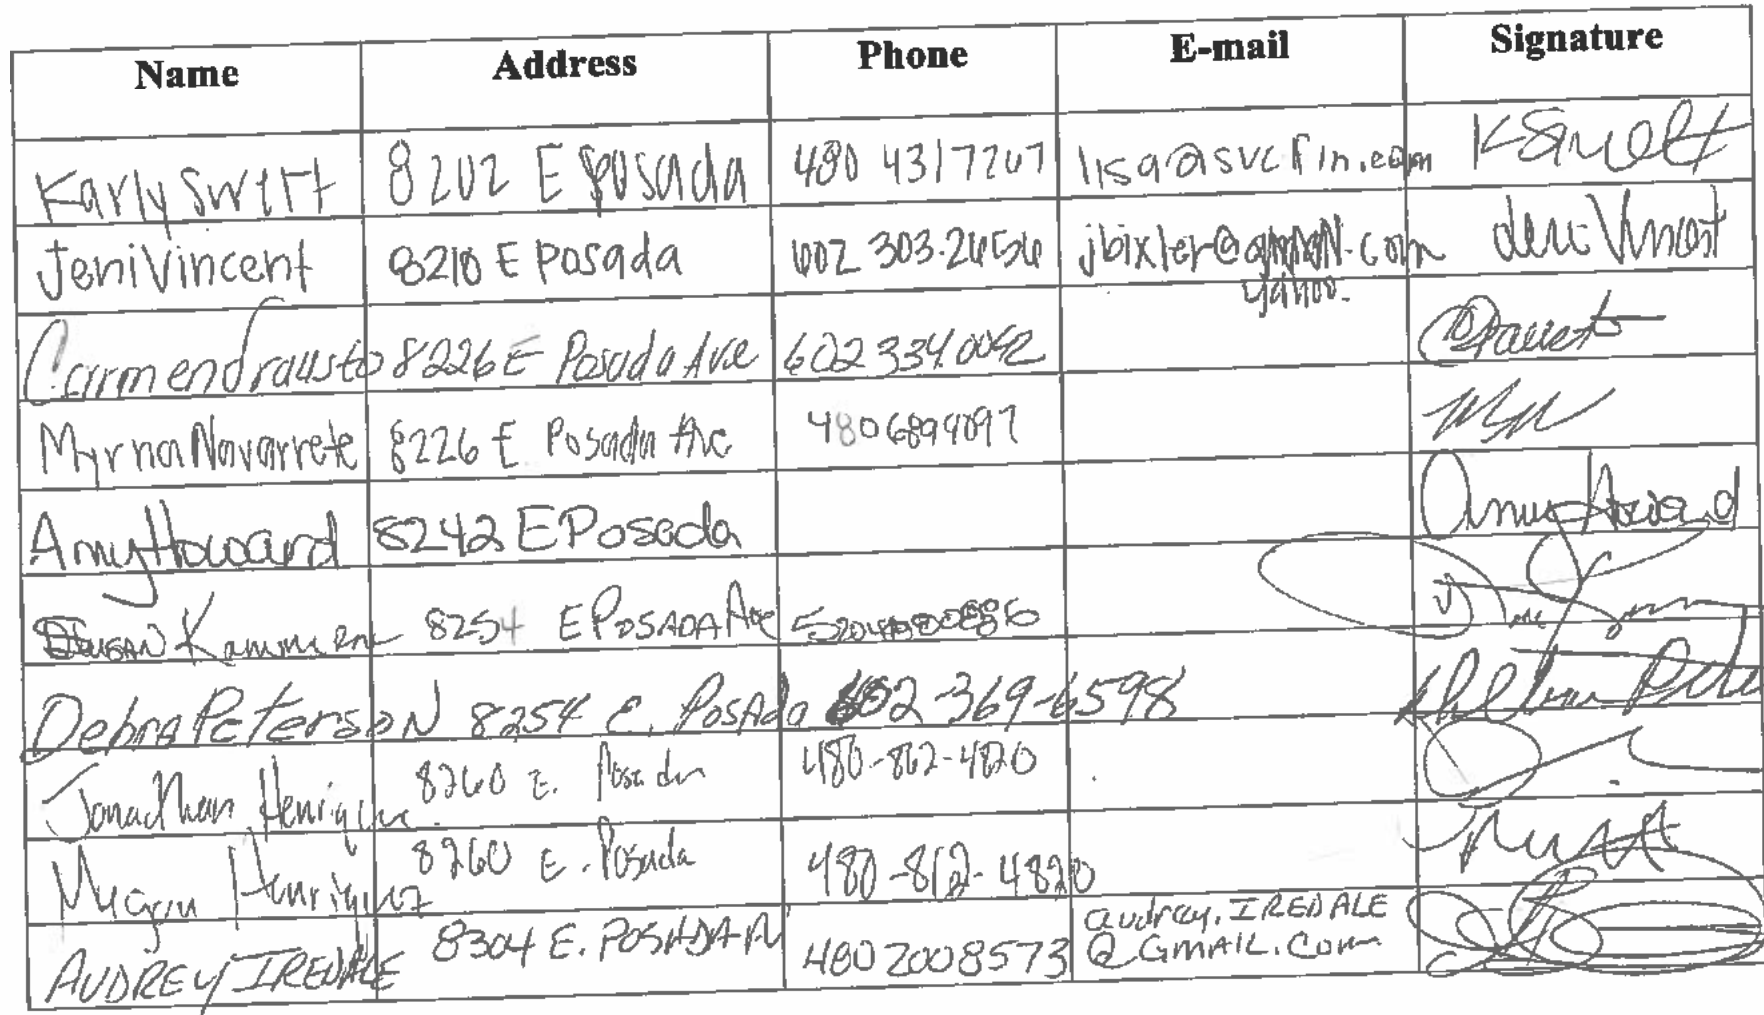 Name Address Phone E-mail Signature
Karly Swift 8202 E Posada 480 4317207 lisa@svcfin.com K Swift
Jeni Vincent 8210 E Posada 602 303.2656 jbixler@ .com Jeni Vincent
yahoo.
Carmen Frausto 8226 E Posada Ave 602 334.0052
Myrna Navarrete 8226 E Posada Ave 4806899097
Amy Howard 8242 E Posada Amy Howard
Susan 8254 E POSADA Ave
Debra Peterson 8254 E. Posada 602-369-6598
Jonathan Henriquez 8260 E. Posada 480-862-4820
Megan Henriquez 8260 E. Posada 480-812-4820
AUDREY IREDALE 8304 E. POSADA 480 2008573 audrey.IREDALE
@GMAIL.Com